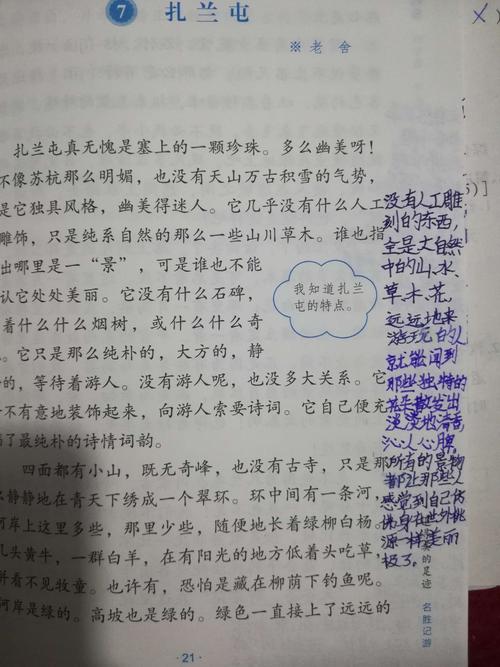 7 扎兰屯
※ 老 舍
扎兰屯真无愧是塞上的一颗珍珠。多么幽美呀!
不像苏杭那么明媚,也没有天山万古积雪的气势,
是它独具风格,幽美得迷人。它几乎没有什么人工
雕饰,只是纯系自然的那么一些山川草木。谁也指
出哪里是一“景”,可是谁也不能
认它处处美丽。它没有什么石碑,
着什么什么烟树,或什么什么奇
。它只是那么纯朴的,大方的,静
的,等待着游人。没有游人呢,也没多大关系。它
不有意地装饰起来,向游人索要诗词。它自己便充
满了最纯朴的诗情词韵。
四面都有小山,既无奇峰,也没有古寺,只是那
么静静地在青天下绣成一个翠环。环中间有一条河,
河岸上这里多些,那里少些,随便地长着绿柳白杨。
几头黄牛,一群白羊,在有阳光的地方低着头吃草,
并看不见牧童。也许有,恐怕是藏在柳荫下钓鱼呢。
河岸是绿的。高坡也是绿的。绿色一直接上了远远的
我知道扎兰
屯的特点。
没有人工雕
刻的东西,
全是大自然
中的山、水、
草木、花,
远远地来
游玩的人
就能闻到
那些独特的
花朵散发出
淡淡地清香
沁人心脾,
所有的景物
都让那些人
感觉到自己仿
佛身在世外桃
源一样美丽
极了。
的足迹
名胜记游
·21·